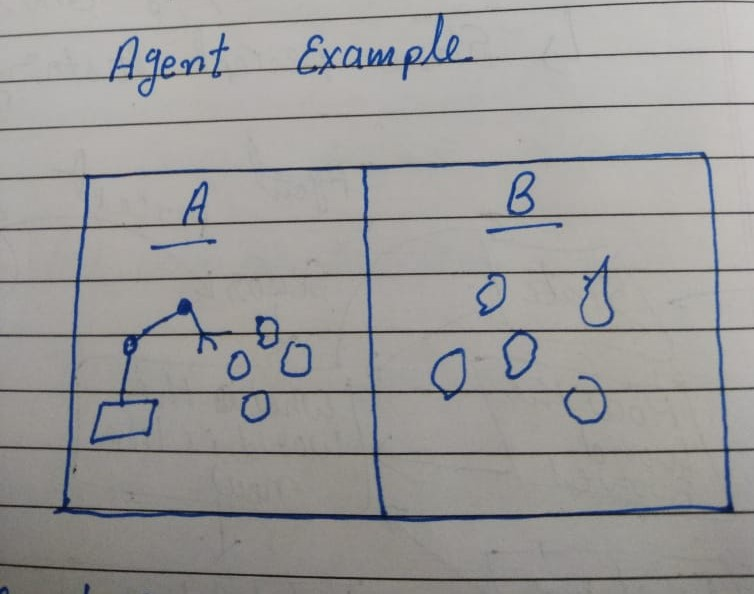 Agent Example
A
B